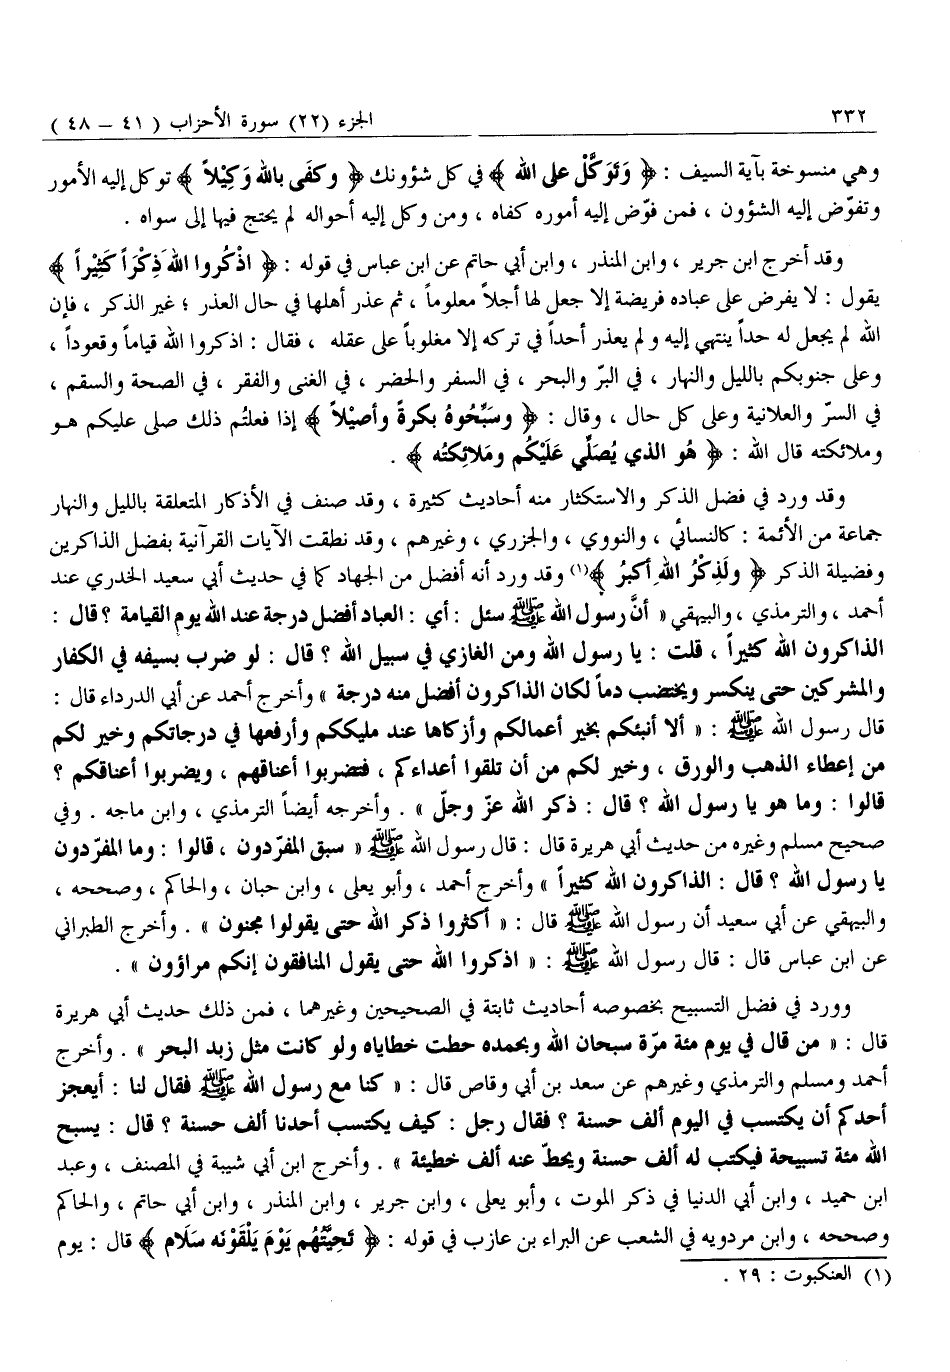 ٣٣٢
الجزء (٢٢) سورة الأحزاب ( ٤١ – ٤٨ )
وهي منسوخة بآية السيف : ﴿ وَتَوَكَّلْ على الله ﴾ في كل شؤونك ﴿ وكفَى بالله وَكِيْلاً ﴾ توكل إليه الأمور
وتفوّض إليه الشؤون ، فمن فوّض إليه أموره كفاه ، ومن وكل إليه أحواله لم يحتج فيها إلى سواه .
وقد أخرج ابن جرير ، وابن المنذر ، وابن أبي حاتم عن ابن عباس في قوله : ﴿ اذْكُروا الله ذِكْرَاً كَثِيْراً ﴾
يقول : لا يفرض على عباده فريضة إلا جعل لها أجلاً معلوماً ، ثم عذر أهلها في حال العذر ؛ غير الذكر ، فإن
الله لم يجعل له حداً ينتهي إليه ولم يعذر أحداً في تركه إلا مغلوباً على عقله ، فقال : اذكروا الله قياماً وقعوداً ،
وعلى جنوبكم بالليل والنهار ، في البرّ والبحر ، في السفر والحضر ، في الغنى والفقر ، في الصحة والسقم ،
في السرّ والعلانية وعلى كل حال ، وقال : ﴿ وسَبِّحُوهُ بكرةً وأصيْلاً ﴾ إذا فعلتُم ذلك صلى عليكم هـو
وملائكته قال الله : ﴿ هُو الذي يُصَلِّي عَلَيْكُم ومَلائِكتُه ﴾ .
وقد ورد في فضل الذكر والاستكثار منه أحاديث كثيرة ، وقد صنف في الأذكار المتعلقة بالليل والنهار
جماعة من الأئمة : كالنسائي ، والنووي ، والجزري ، وغيرهم ، وقد نطقت الآيات القرآنية بفضل الذاكرين
وفضيلة الذكر ﴿ ولَذِكْرُ الله أكبرُ ﴾(١) وقد ورد أنه أفضل من الجهاد كما في حديث أبي سعيد الخدري عند
أحمد ، والترمذي ، والبيهقي « أنَّ رسول الله ﷺ سئل : أي : العباد أفضل درجة عند الله يوم القيامة ؟ قال :
الذاكرون الله كثيراً ، قلت : يا رسول الله ومن الغازي في سبيل الله ؟ قال : لو ضرب بسيفه في الكفار
والمشركين حتى ينكسر ويختضب دماً لكان الذاكرون أفضل منه درجة » وأخرج أحمد عن أبي الدرداء قال :
قال رسول الله ﷺ : « ألا أنبئكم بخير أعمالكم وأزكاها عند مليككم وأرفعها في درجاتكم وخير لكم
من إعطاء الذهب والورق ، وخير لكم من أن تلقوا أعداءكم ، فتضربوا أعناقهم ، ويضربوا أعناقكم ؟
قالوا : وما هو يا رسول الله ؟ قال : ذكر الله عزّ وجلّ » . وأخرجه أيضاً الترمذي ، وابن ماجه . وفي
صحيح مسلم وغيره من حديث أبي هريرة قال : قال رسول الله ﷺ « سبق المفرّدون ، قالوا : وما المفرّدون
يا رسول الله ؟ قال : الذاكرون الله كثيراً » وأخرج أحمد ، وأبو يعلى ، وابن حبان ، والحاكم ، وصححه ،
والبيهقي عن أبي سعيد أن رسول الله ﷺ قال : « أكثروا ذكر الله حتى يقولوا مجنون » . وأخرج الطبراني
عن ابن عباس قال : قال رسول الله ﷺ : « اذكروا الله حتى يقول المنافقون إنكم مراؤون » .
وورد في فضل التسبيح بخصوصه أحاديث ثابتة في الصحيحين وغيرهما ، فمن ذلك حديث أبي هريرة
قال : « من قال في يوم مئة مرّة سبحان الله وبحمده حطت خطاياه ولو كانت مثل زبد البحر » . وأخرج
أحمد ومسلم والترمذي وغيرهم عن سعد بن أبي وقاص قال : « كنا مع رسول الله ﷺ فقال لنا : أيعجز
أحدكم أن يكتسب في اليوم ألف حسنة ؟ فقال رجل : كيف يكتسب أحدنا ألف حسنة ؟ قال : يسبح
الله مئة تسبيحة فيكتب له ألف حسنة ويحطّ عنه ألف خطيئة » . وأخرج ابن أبي شيبة في المصنف ، وعبد
ابن حميد ، وابن أبي الدنيا في ذكر الموت ، وأبو يعلى ، وابن جرير ، وابن المنذر ، وابن أبي حاتم ، والحاكم
وصححه ، وابن مردويه في الشعب عن البراء بن عازب في قوله : ﴿ تَحِيَّتُهُم يَوْمَ يَلْقَوْنَه سَلَام ﴾ قال : يوم
(١) العنكبوت : ٢٩ .